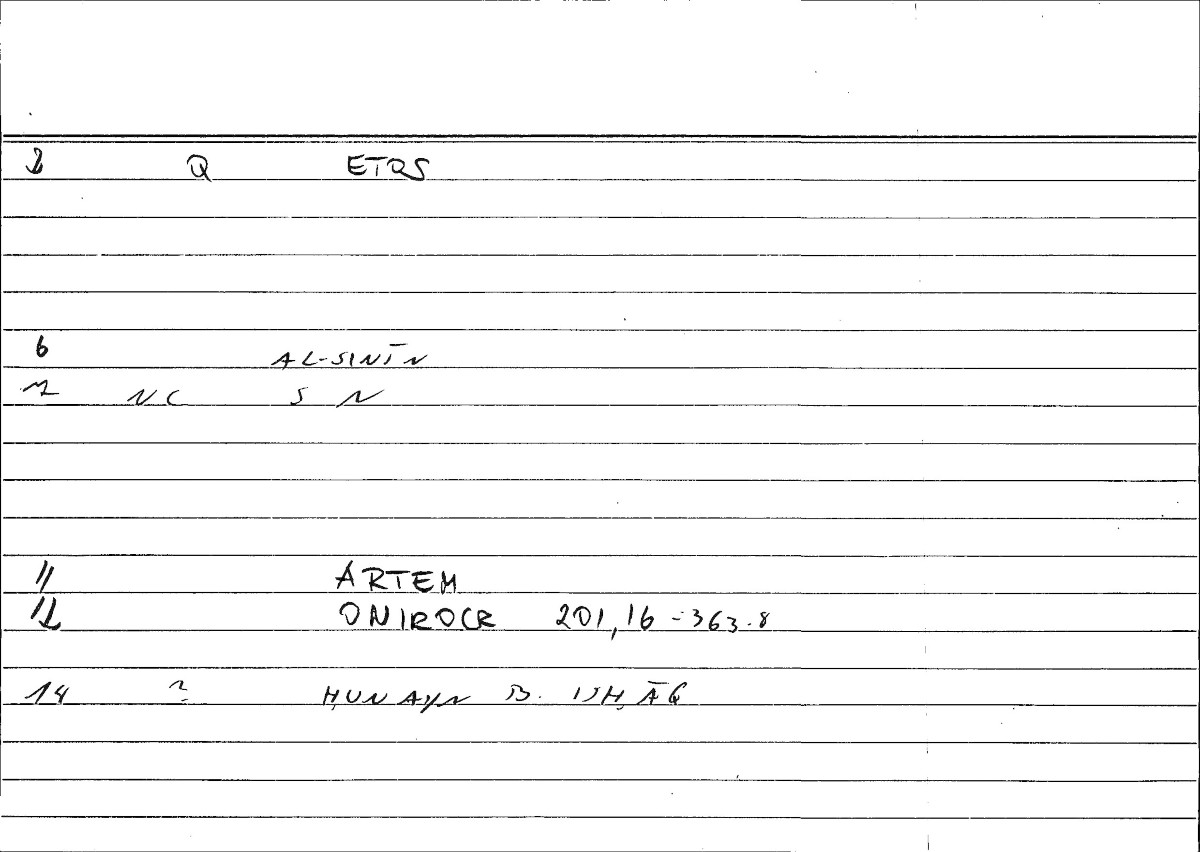 2 Q ETOS
6 AL-SINĪN
7 NC S N
11 ARTEM
12 ONIROCR 201,16-363.8
14 ? ḤUNAYN B. ISḤĀQ